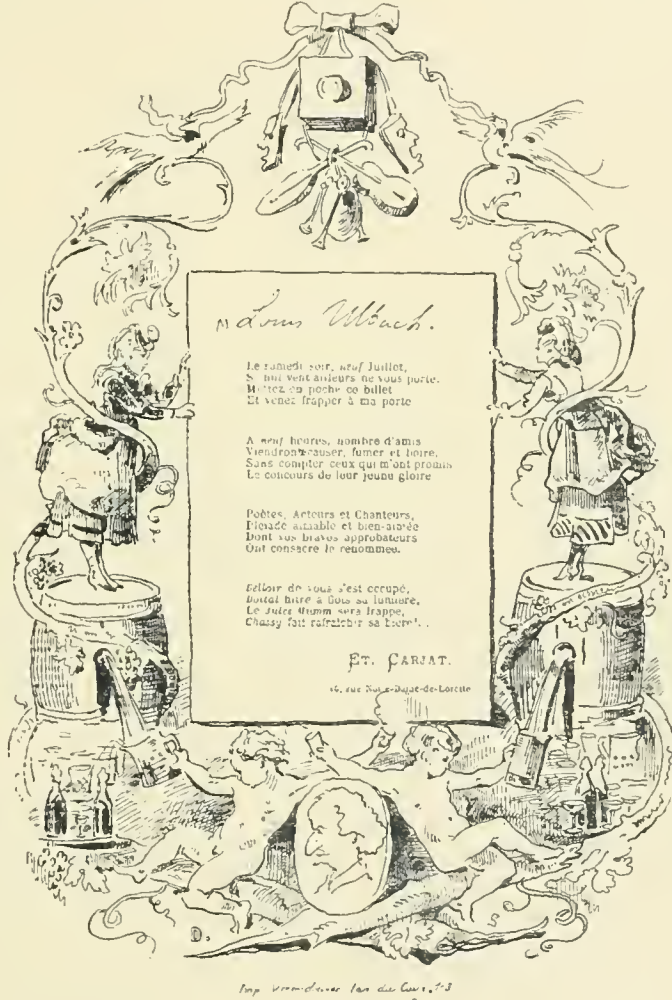 M Louis Ulbach.
Le samedi soir, neuf Juillet,
Si nul vent ailleurs ne vous porte,
Mettez en poche ce billet
Et venez frapper à ma porte
A neuf heures, nombre d'amis
Viendront causer, fumer et boire,
Sans compter ceux qui m'ont promis
Le concours de leur jeune gloire
Poètes, Acteurs et Chanteurs,
Pléiade aimable et bien-aimée
Dont vos bravos approbateurs
Ont consacré la renommée.
Belloir de vous s'est occupé,
à flots sa lumière,
Le Jules Mumm sera frappé,
Chassy fait rafraîchir sa bière!..
ET. CARJAT.
rue Notre-Dame-de-Lorette
D.
S
Imp